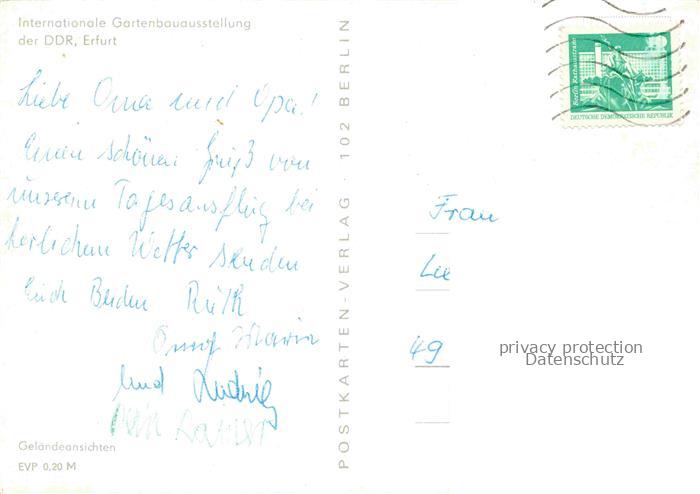 Internationale Gartenbauausstellung
der DDR, Erfurt
Liebe Oma und Opa!
Einen schönen Gruß von
unserem Tagesausflug bei
herlichem Wetter senden
Euch Beiden Ruth
Maria
und Ludwig
Geländeansichten
EVP 0,20 M
POSTKARTEN-VERLAG · 102 BERLIN
Berlin Rathausstrasse
DEUTSCHE DEMOKRATISCHE REPUBLIK
Frau
49
privacy protection
Datenschutz